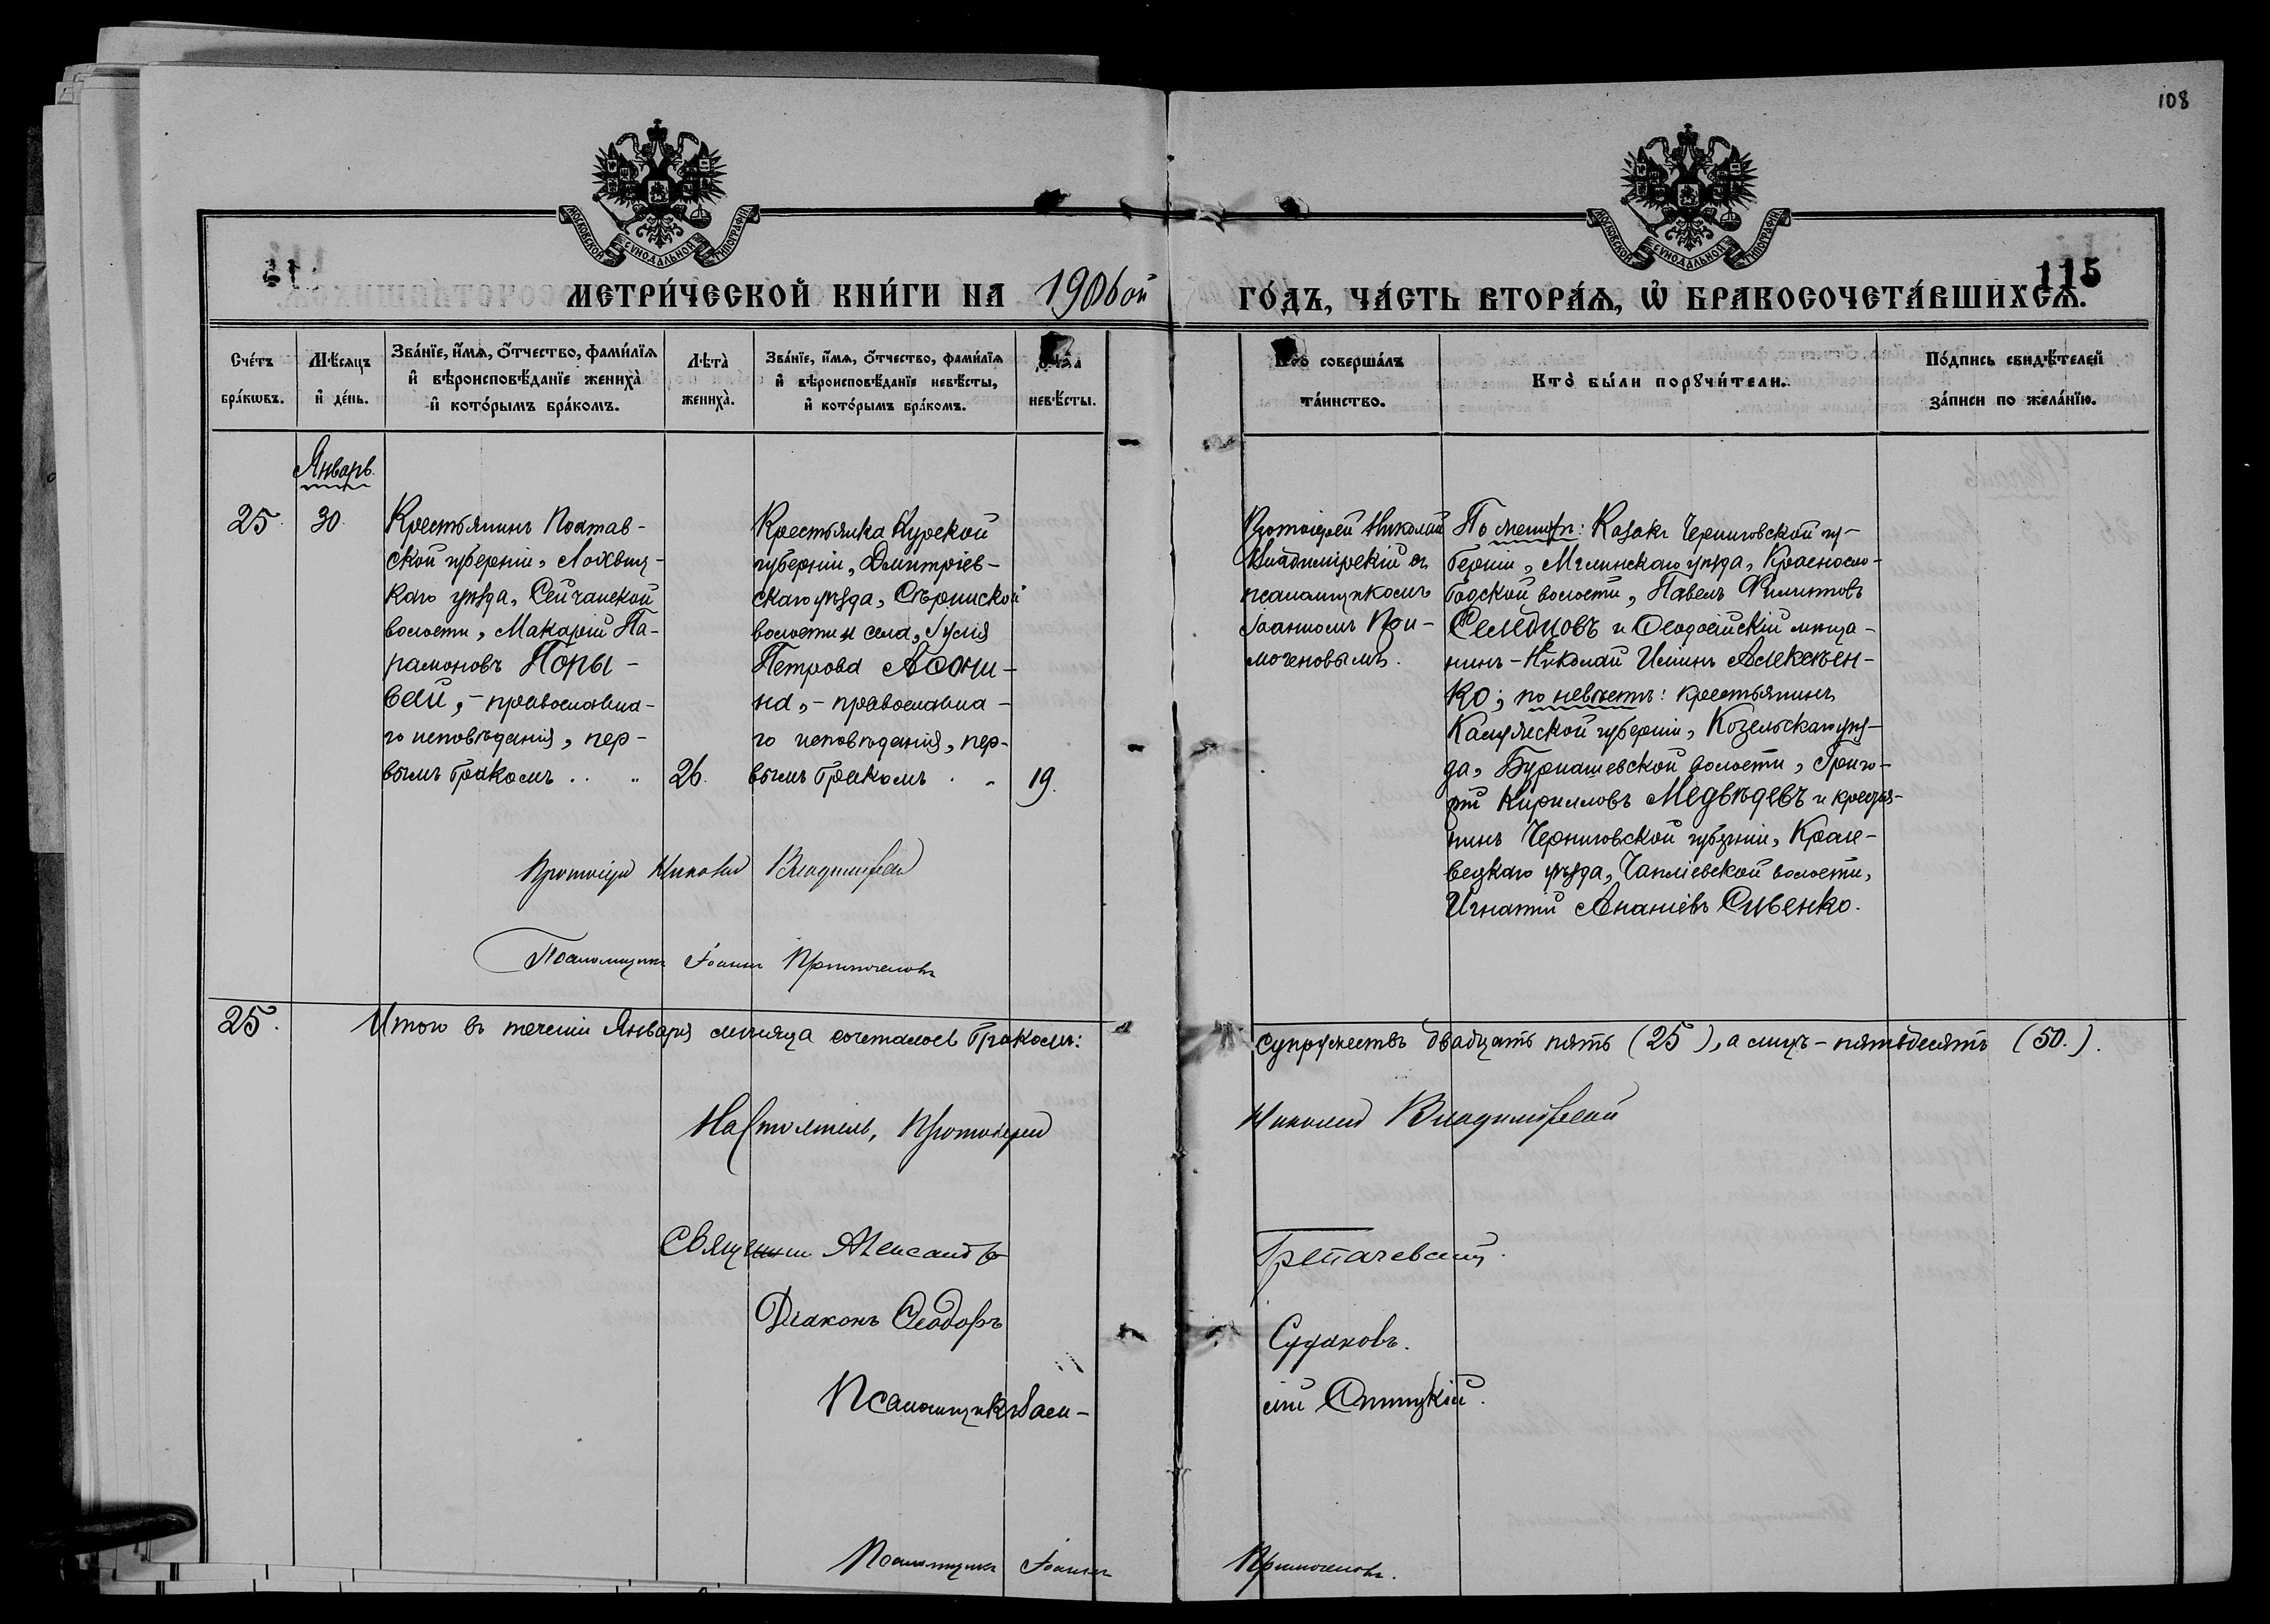 108
МОСКОВСКОЙ СѴНОДАЛЬНОЙ ТИПОГРАФІИ
МОСКОВСКОЙ СѴНОДАЛЬНОЙ ТИПОГРАФІИ
115
МЕТРИ́ЧЕСКОЙ КНИ́ГИ НА 1906ой ГО́ДЪ, ЧА́СТЬ ВТОРА́Я, Ѡ҆ БРАКОСОЧЕТА́ВШИХСЯ.
Сче́тъ бра́кѡвъ.
Мѣ́сяцъ и҆ де́нь.
Зва́нїе, и҆́мя, ѻ҆́тчество, фами́лїя
и҆ вѣроисповѣ́данїе жениха̀
и҆ кото́рымъ бра́комъ.
Лѣта̀ жениха̀.
Зва́нїе, и҆́мя, ѻ҆́тчество, фами́лїя
и҆ вѣроисповѣ́данїе невѣ́сты,
и҆ кото́рымъ бра́комъ.
Лѣта̀ невѣ́сты.
Кто̀ соверша́лъ
та́инство.
Кто̀ бы́ли порꙋчи́тели.
По́дпись свидѣ́телей
за́писи по жела́нїю.
Январь.
25. 30.
Крестьянинъ Полтав-
ской губерніи, Лохвиц-
каго уѣзда, Сенчанской
волости, Макарій Па-
рамоновъ Норы-
вай, - православна-
го исповѣданія, пер-
вымъ бракомъ . . „
26.
Крестьянка Курской
губерніи, Дмитріев-
скаго уѣзда,
волости и села, Іулія
Петрова
на, - православна-
го исповѣданія, пер-
вымъ бракомъ . „
19.
Протоіерей Николай
Владимірскій съ
псаломщикомъ
Іоанномъ При-
моченовымъ.
По женихѣ: Козакъ Черниговской гу-
берніи, Мглинскаго уѣзда, Красносло-
бодской волости, Павелъ Филиповъ
Селедцовъ и Ѳеодосійскій мѣща-
нинъ - Николай Ильинъ Алексѣен-
ко; по невѣстѣ: крестьянинъ
Калужской губерніи, Козельскаго уѣз-
да, Бурнашевской волости, Григо-
рій Кирилловъ Медвѣдевъ и кресть-
нинъ Черниговской губерніи, Кроле-
вецкаго уѣзда, Чапліевской волости,
Игнатій Ананіевъ Сивенко.
Протоіерей Николай Владимірскій
Псаломщикъ Іоаннъ Примоченовъ
25. Итого въ теченіи Января мѣсяца сочеталось бракомъ: супружествъ двадцать пять (25), а лицъ - пятьдесятъ (50.).
Настоятель, Протоіерей Николай Владимірскій
Священникъ Александръ
Діаконъ Ѳеодоръ Судаковъ.
Псаломщикъ Васи-
лій
Псаломщикъ Іоаннъ Примоченовъ.